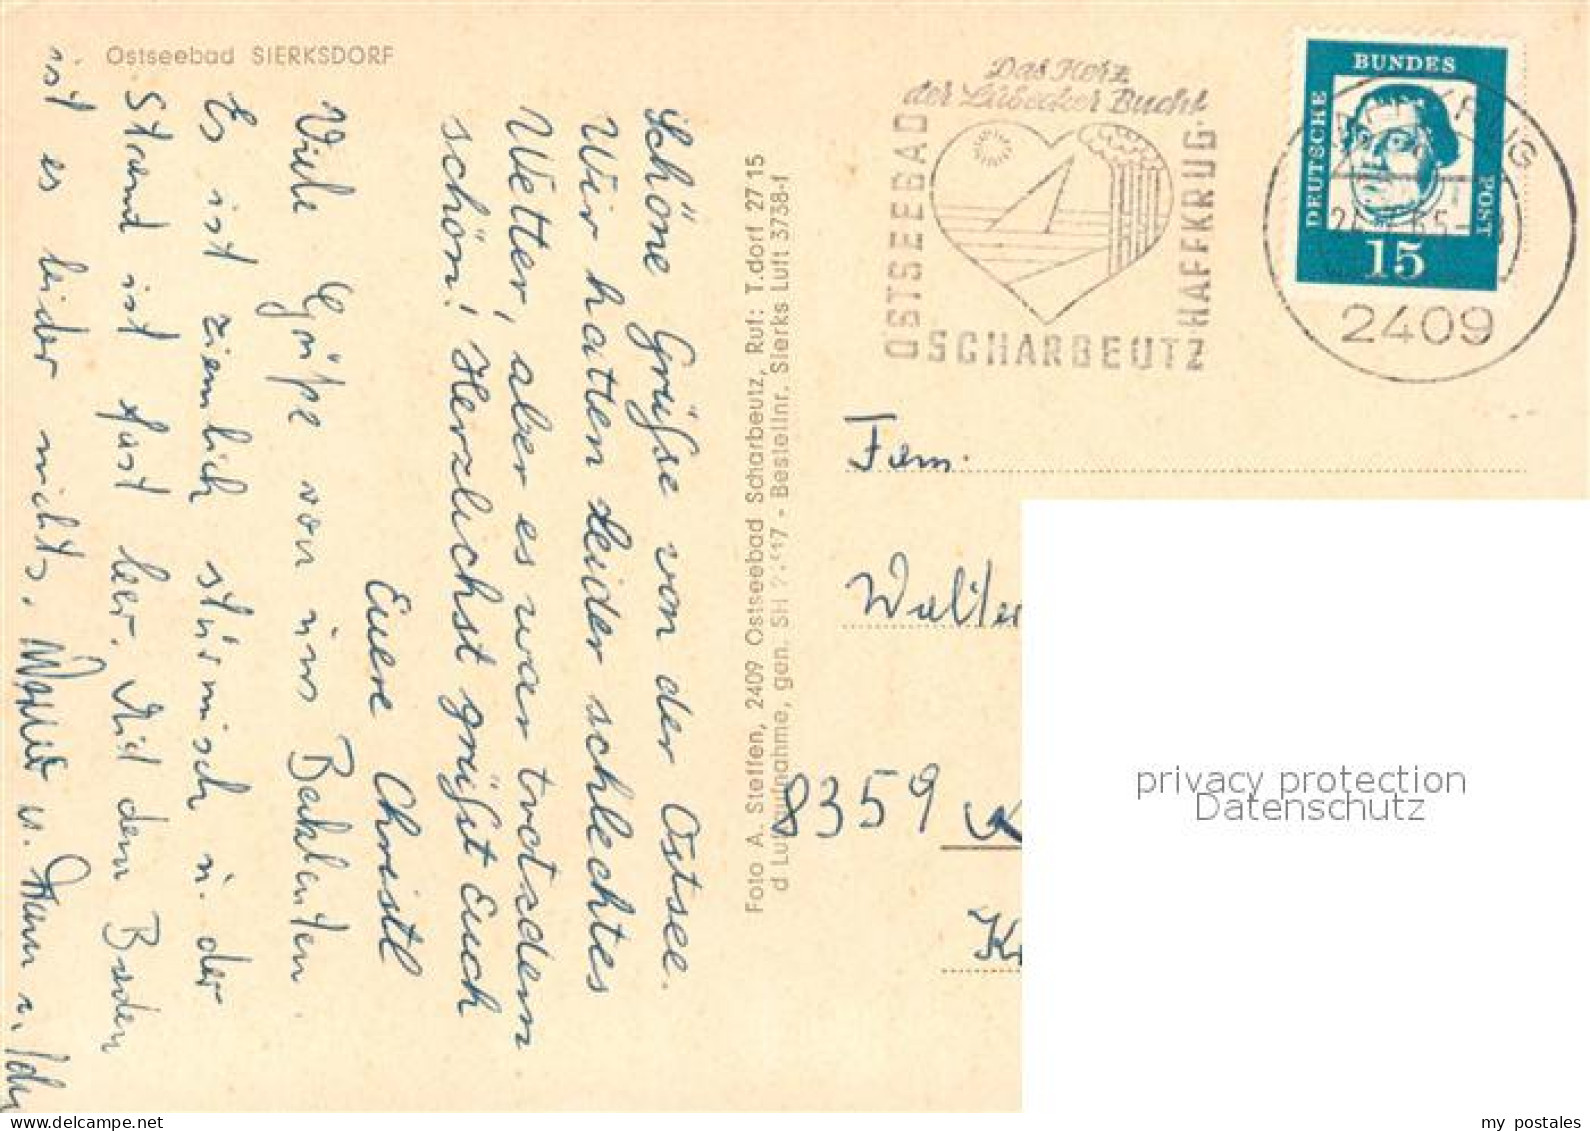 Ostseebad SIERKSDORF
Schöne Grüße von der Ostsee.
Wir hatten leider schlechtes
Wetter, aber es war trotzdem
schön! Herzlichst grüßt Euch
Euere Christl
Viele Grüße von uns
Es ist ziemlich stürmisch u. der
Strand ist fast leer. Mit dem Baden
ist es leider nichts.
Foto A. Steffen, 2409 Ostseebad Scharbeutz, Ruf: T.dorf 27 15
d Luftaufnahme, gen. SH - Bestellnr. Sierks Luft 3738-1
Das Herz
der Lübecker Bucht
OSTSEEBAD
SCHARBEUTZ
HAFFKRUG
DEUTSCHE
BUNDES
POST
15
2409
Fam.
Walter
8359
privacy protection
Datenschutz
my postales